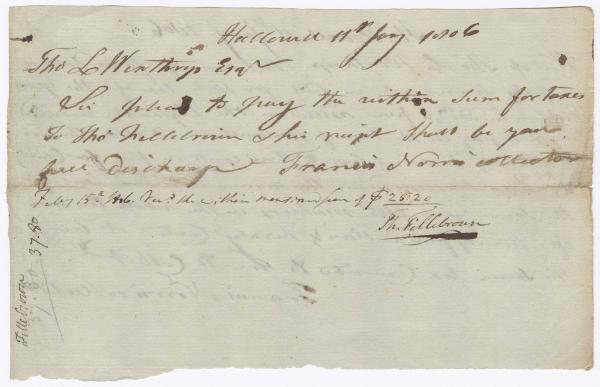 Hallowell 11th Jany 1806
Thos L Winthrop Esqr
Sir please to pay the within Sum for taxes
To Thos Fillebrown & his recipt Shall be your
full Discharge Francis Norris collector
Feby 15th 1806. Recd the within mentiond sum of $25.20
Th. Fillebrown
Fillebrown
37.80